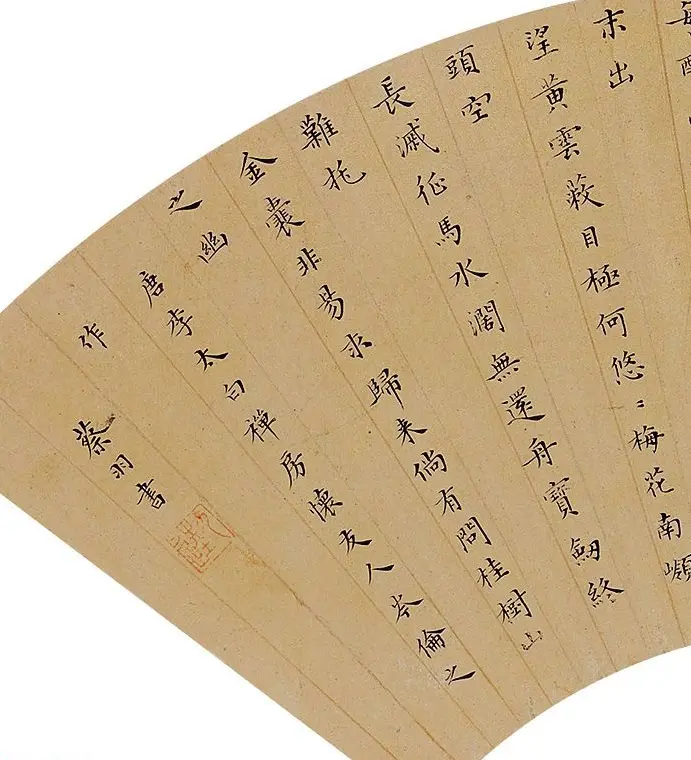 每醉
末出
望黃雲蔽目極何悠〻梅花南嶺
頭空
長滅征馬水濶無還舟寶劒終
難托
金囊非易求歸来倘有問桂樹山
之幽
唐李太白禪房懷友人岑倫之
作
蔡羽書